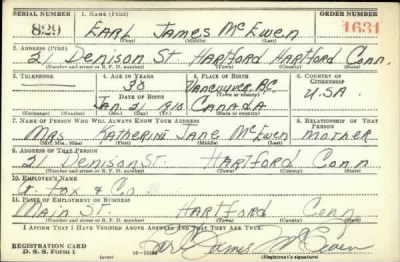 SERIAL NUMBER 1. NAME (Print) ORDER NUMBER
829 EARL JAMES McEWEN 1631
(First) (Middle) (Last)
2. ADDRESS (Print)
21 DENISON ST. HARTFORD HARTFORD CONN.
(Number and street or R. F. D. number) (Town) (County) (State)
3. TELEPHONE 4. AGE IN YEARS 5. PLACE OF BIRTH 6. COUNTRY OF CITIZENSHIP
VANCOUVER, B.C.
(Town or county)
DATE OF BIRTH U.S.A.
JAN. 21 CANADA
(Exchange) (No.) (Mo.) (Day) (Yr.) (State or country)
7. NAME OF PERSON WHO WILL ALWAYS KNOW YOUR ADDRESS 8. RELATIONSHIP OF THAT PERSON
MRS. KATHERINE JANE McEWEN MOTHER
(Mr., Mrs., Miss) (First) (Middle) (Last)
9. ADDRESS OF THAT PERSON
21 DENISON ST. HARTFORD CONN
(Number and street or R. F. D. number) (Town) (County) (State)
10. EMPLOYER'S NAME
G. FOX & CO.
11. PLACE OF EMPLOYMENT OR BUSINESS
MAIN ST. HARTFORD CONN
(Number and street or R. F. D. number) (Town) (County) (State)
I AFFIRM THAT I HAVE VERIFIED ABOVE ANSWERS AND THAT THEY ARE TRUE.
REGISTRATION CARD Earl James McEwen
D. S. S. Form 1 (over) (Registrant's signature)